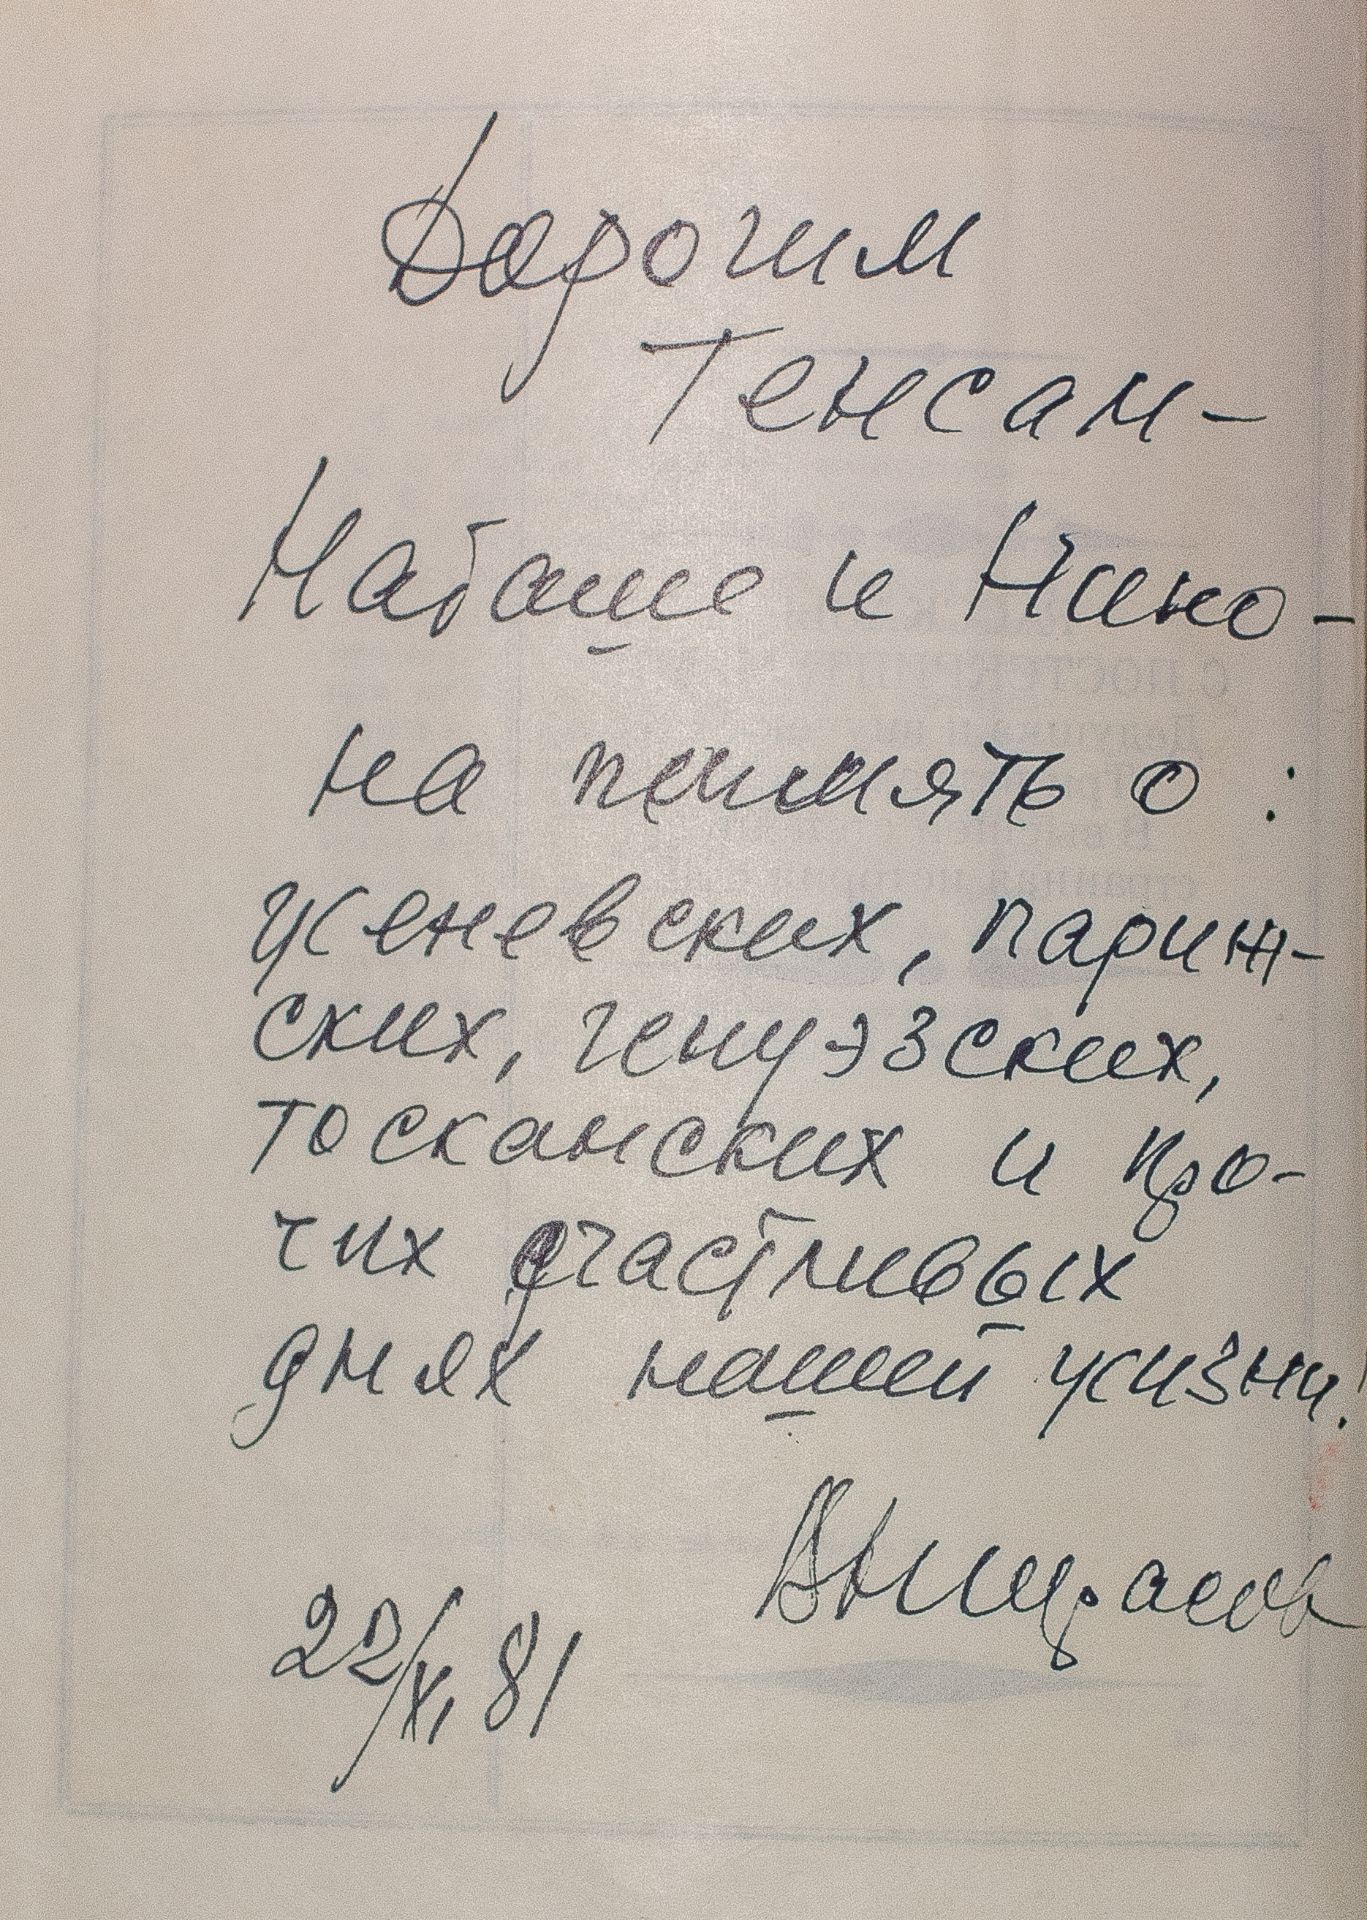 Дорогим
Тенсам -
Наташе и Нино -
на память о :
женевских, париж-
ских, генуэзских,
тосканских и про-
чих счастливых
днях нашей жизни!
22/XI 81